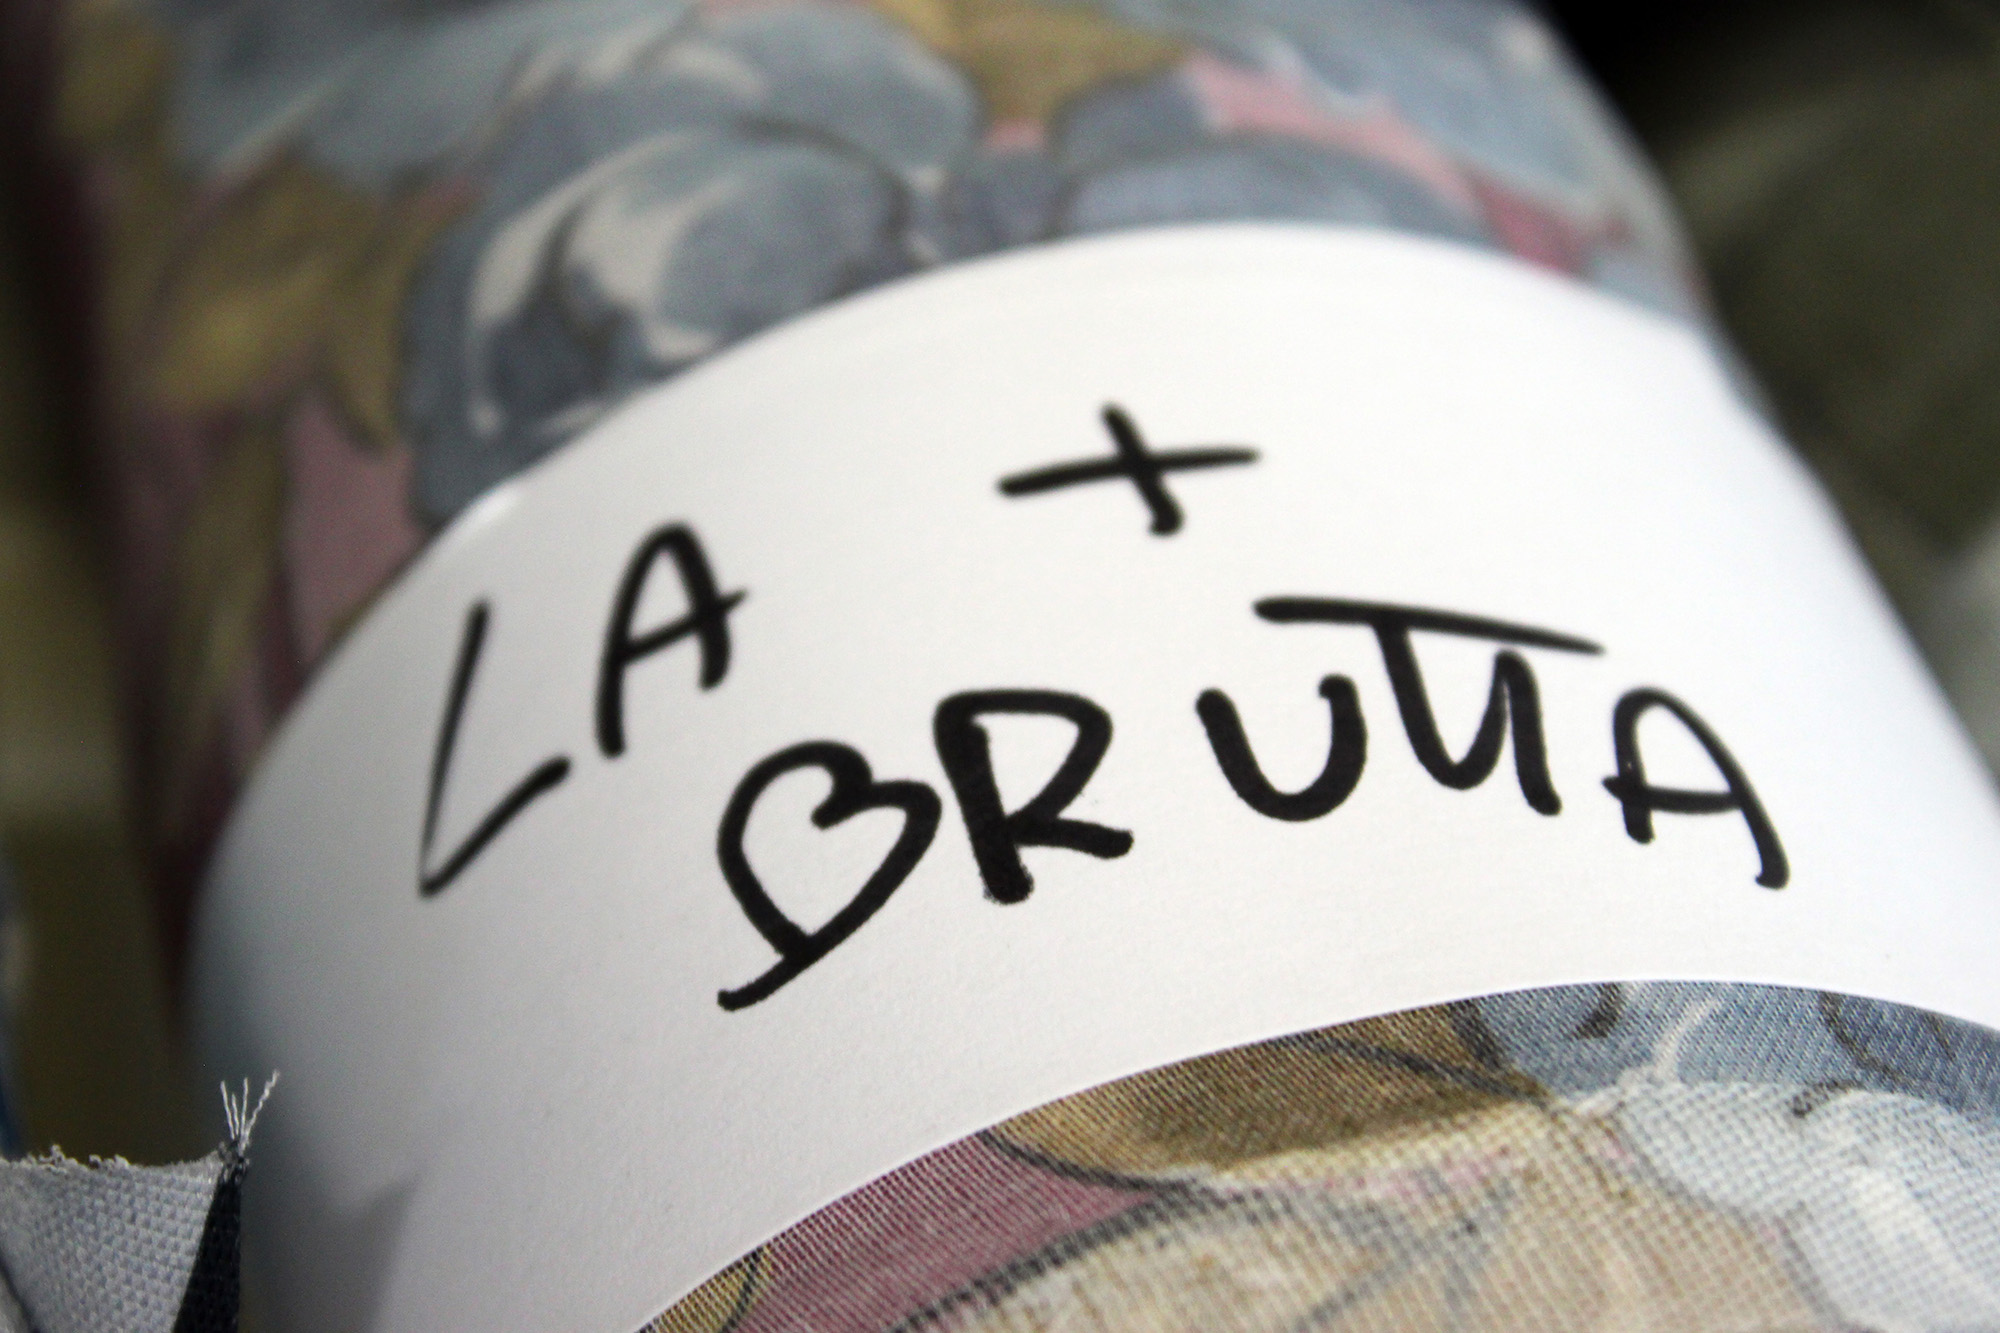 LA +
BRUTTA